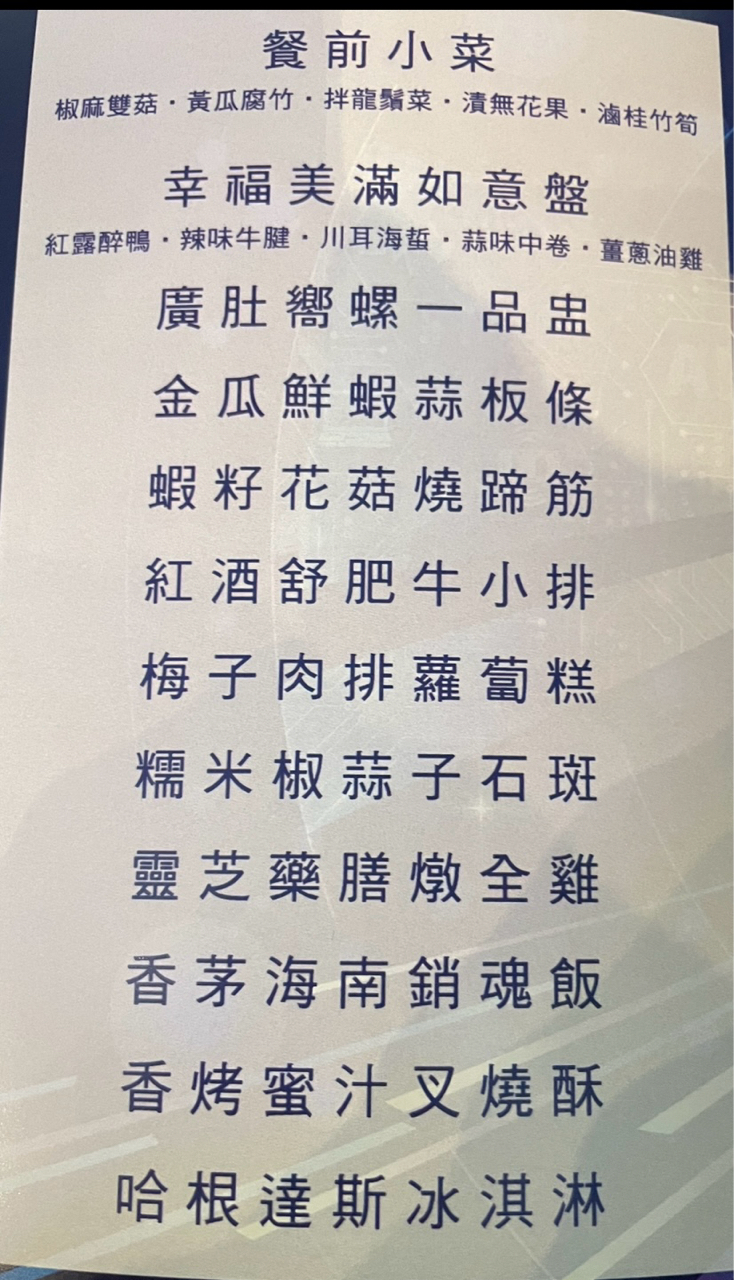 餐前小菜
椒麻雙菇・黃瓜腐竹・拌龍鬚菜・漬無花果・滷桂竹筍
幸福美滿如意盤
紅露醉鴨・辣味牛腱・川耳海蜇・蒜味中卷・薑蔥油雞
廣肚嚮螺一品盅
金瓜鮮蝦蒜板條
蝦籽花菇燒蹄筋
紅酒舒肥牛小排
梅子肉排蘿蔔糕
糯米椒蒜子石斑
靈芝藥膳燉全雞
香茅海南銷魂飯
香烤蜜汁叉燒酥
哈根達斯冰淇淋